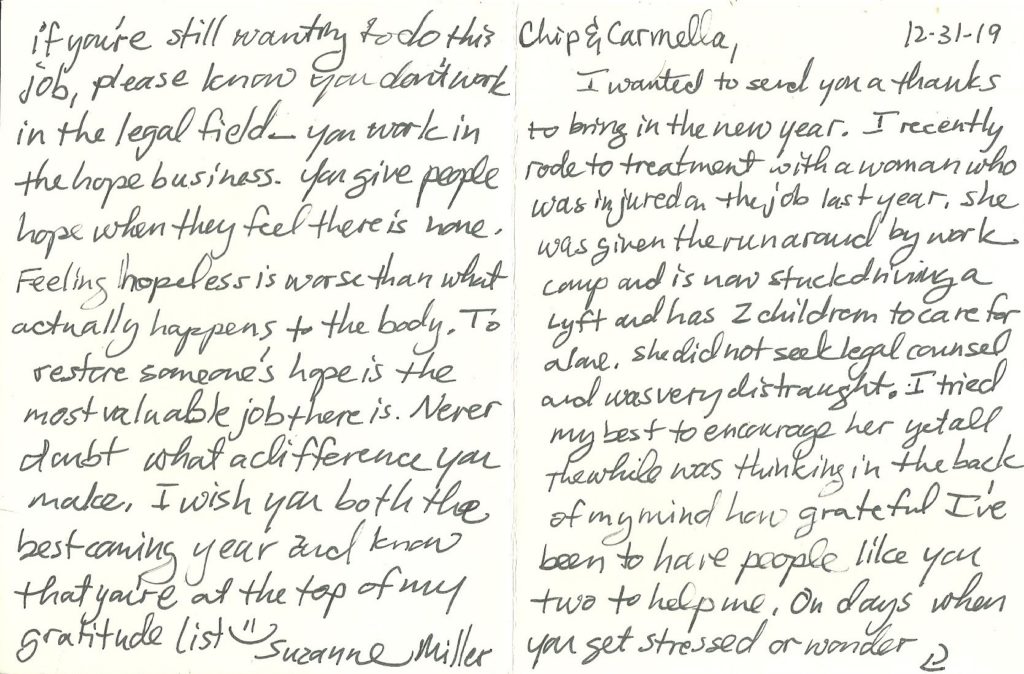 Chip & Carmella,
12-31-19
I wanted to send you a thanks
to bring in the new year. I recently
rode to treatment with a woman who
was injured on the job last year. She
was given the runaround by work
comp and is now stuck driving a
Lyft and has 2 children to care for
alone. She did not seek legal counsel
and was very distraught. I tried
my best to encourage her yet all
the while was thinking in the back
of my mind how grateful I've
been to have people like you
two to help me. On days when
you get stressed or wonder
if you're still wanting to do this
job, please know you don't work
in the legal field - you work in
the hope business. You give people
hope when they feel there is none.
Feeling hopeless is worse than what
actually happens to the body. To
restore someone's hope is the
most valuable job there is. Never
doubt what a difference you
make. I wish you both the
best coming year and know
that you're at the top of my
gratitude list
Suzanne Miller